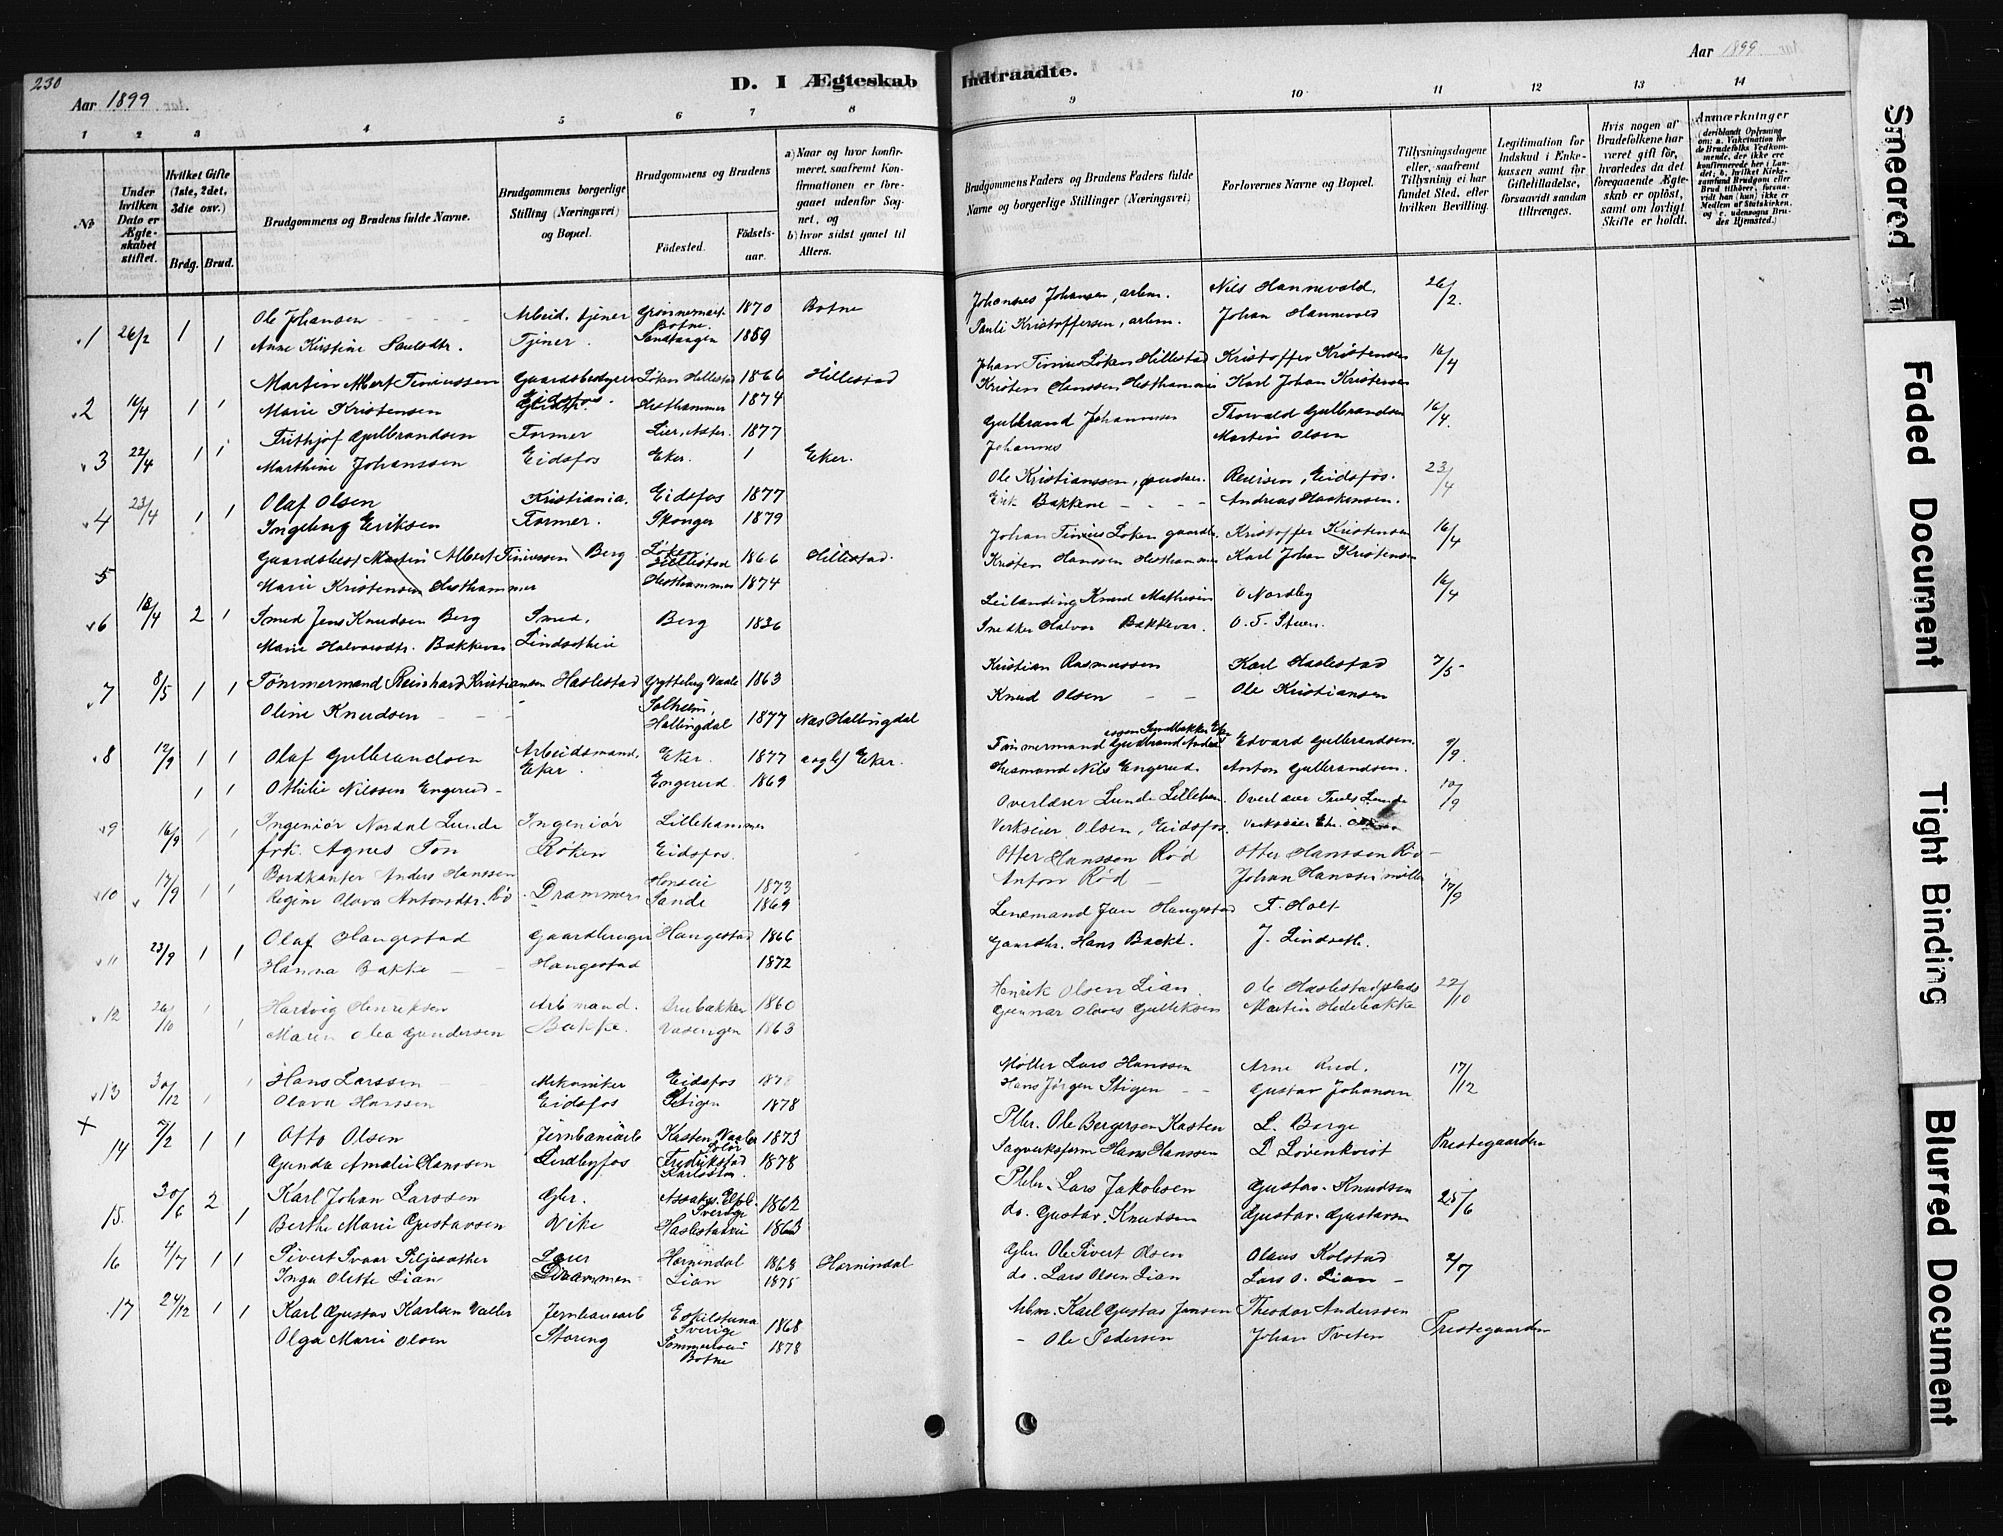 230
D. I Ægteskab Indtraadte.
Aar 1899
Aar 1899
1 2 3 4 5 6 7 8 9 10 11 12 13 14
No
Under hvilken Dato er Ægteskabet stiftet.
Hvilket Gifte (1ste, 2det, 3die osv.)
Brdg. Brud.
Brudgommens og Brudens fulde Navne.
Brudgommens borgerlige Stilling (Næringsvei) og Bopæl.
Brudgommens og Brudens
Fødested. Fødselsaar.
a) Naar og hvor konfirmeret, saafremt Konfirmationen er foregaaet udenfor Sognet, og
b) hvor sidst gaaet til Alters.
Brudgommens Faders og Brudens Faders fulde Navne og borgerlige Stillinger (Næringsvei)
Forlovernes Navne og Bopæl.
Tillysningsdagene eller, saafremt Tillysning ei har fundet Sted, efter hvilken Bevilling.
Legitimation for Indskud i Enkekassen samt for Giftetilladelse, forsaavidt sandan tiltrænges.
Hvis nogen af Brudefolkene har været gift før, hvorledes da det foregaaende Ægteskab er opløst, samt om lovligt Skifte er holdt.
Anmærkninger (deriblandt Oplysning om: a. Vakcination for de Brudefolks Vedkommende, der ikke ere konfirmerede her i Landet; b. hvilket Kirkesamfund Brudgom eller Brud tilhører, forsaavidt han (hun) ikke er Medlem af Statskirken, og c. udensogns Brudes Hjemsted.)
1 26/2 1 Ole Johansen Arbeid. tjener Botne 1870 Botne Johannes Johansen, arbm. Nils Hannevold. 26/2.
1 Anne Kirstine Paulsdtr. Tjener. Sandtangen 1859 Pauli Kristoffersen, arbm. Johan Hannevold
2 16/4 1 1 Martin Albert Timiussen Gaardsbestyrer Eidsfos. Løken Hillestad 1866 Hillestad Johan Timius Løken Hillestad Kristoffer Kristensen 16/4
Marie Kristensen Hesthammer 1874 Kristen Hanssen Hesthammer Karl Johan Kristensen
3 22/4 1 1 Frithjof Gulbrandsen Former Lier, Asker. 1877 Gulbrand Johannessen Thorvald Gulbrandsen 16/4.
Marthine Johanssen Eidsfos Eker. Eker. Johannes Martin Olsen
4 23/4 1 1 Olaf Olsen Kristiania. Eidsfos 1877 Ole Kristianssen, Reiersen, Eidsfos. 23/4
Ingeborg Eriksen Former. Skonger 1879 Erik Bakkene Andreas Haakensen.
5 Gaardsbest Martin Albert Timiussen Berg Løken Hillestad 1866 Hillestad. Johan Timius Løken gaardbr. Kristoffer Kristensen 16/4
Marie Kristensen Hesthammer Hesthammer 1874 Kristen Hanssen Hesthammer Karl Johan Kristensen
6 18/4 2 1 Smed Jens Knudsen Berg Smed, Berg 1836 Leilænding Knud Mathisen O Nordby 16/4
Marie Halvorsdtr. Bakkevar Lindsetheie Snedker Halvor Bakkevar. O. T. Stuen.
7 8/5 1 1 Tømmermand Reinhard Kristiansen Haslestad Gryttebug Vaale 1863 Kristian Rasmussen Karl Haslestad 7/5
Oline Knudsen Solheim, Hallingdal 1877 Næs Hallingdal Knud Olsen Ole Kristiansen
8 17/9 1 1 Olaf Gulbrandsen Arbeidsmand, Eker. Eker. 1877 a og b) Eker. Tømmermand Gudbrand Edvard Gulbrandsen. 9/9.
1 1 Othilie Nilssen Engerud Engerud 1869 Husmand Nils Engerud. Anton Gulbrandsen.
9 16/9 1 1 Ingeniør Nordal Lunde Ingeniør Lillehammer Overlærer Lunde Lilleham. Overlærer Truls Lunde 10/9
frk. Agnes Ton Røken Eidsfos. Verkseier Olsen, Eidsfos. Verkseier
10 17/9 1 1 Bordkanter Anders Hanssen Drammen 1873 Otter Hanssen Rød Otter Hanssen Rød 17/9
Regine Olava Antonsdtr. Rø Sande 1869 Anton Rød Johan Hanssen møller
11 23/9 1 1 Olaf Hangestad Gaardbruger Hangestad 1866 Lensmand Jan Hangestad F. Holt
Hanna Bakke Hangestad 1872 Gaardbr. Hans Bakke. J. Lindseth.
12 26/10 1 Hartvig Henriksen Arb mand. Brubakken 1860 Henrik Olsen Lian Ole Haslestadplads 22/10
1 Maren Olea Gundersen Bakke. Vasengen 1863 Gunnar Olaves Gulliksen Martin Hedebakke
13 30/12 1 1 Hans Larssen Mekaniker Eidsfos 1878 Møller Lars Hanssen Arne Rud. 17/12
Olava Hanssen Eidsfos Stigen 1878 Hans Jørgen Stigen Gustav Johansen
14 7/2 1 1 Otto Olsen Jernbanearb Kasten Vaaler Solør 1873 Pbbr. Ole Bergersen Kasten L. Berge Prestegaarden
Gunda Amalie Hanssen Lindbyfos Fredrikstad 1878 Sagverksform Hans Hanssen D Løvenkvist
15. 30/6 2 Karl Johan Larssen Gbr. Sverige 1862 Pbbr. Lars Jakobsen Gustav. Knudsen 25/6
1 Berthe Marie Gustavsen Vike Haslestadeie 1863 do. Gustav. Knudsen Gustav. Gustavsn
16 4/7 1 1 Sivert Ivaar Siljesæther Lærer Hornindal 1868 Hornindal Gbr. Ole Sivert Olsen Olaus Kolstad 2/7
Inga Olette Lian Drammen Lian 1875 do. Lars Olsen Lian Lars O. Lian
17 24/12 1 1 Karl Gustav Karlsen Valler Jernbanearb Eskilstuna Sverige 1868 Arbm. Karl Gustav Jansen Theodor Anderssen Prestegaarden
Olga Marie Olsen Storeng Botne 1878 Ole Pedersen Johan Tveten
Smeared In
Faded Document
Tight Binding
Blurred Document